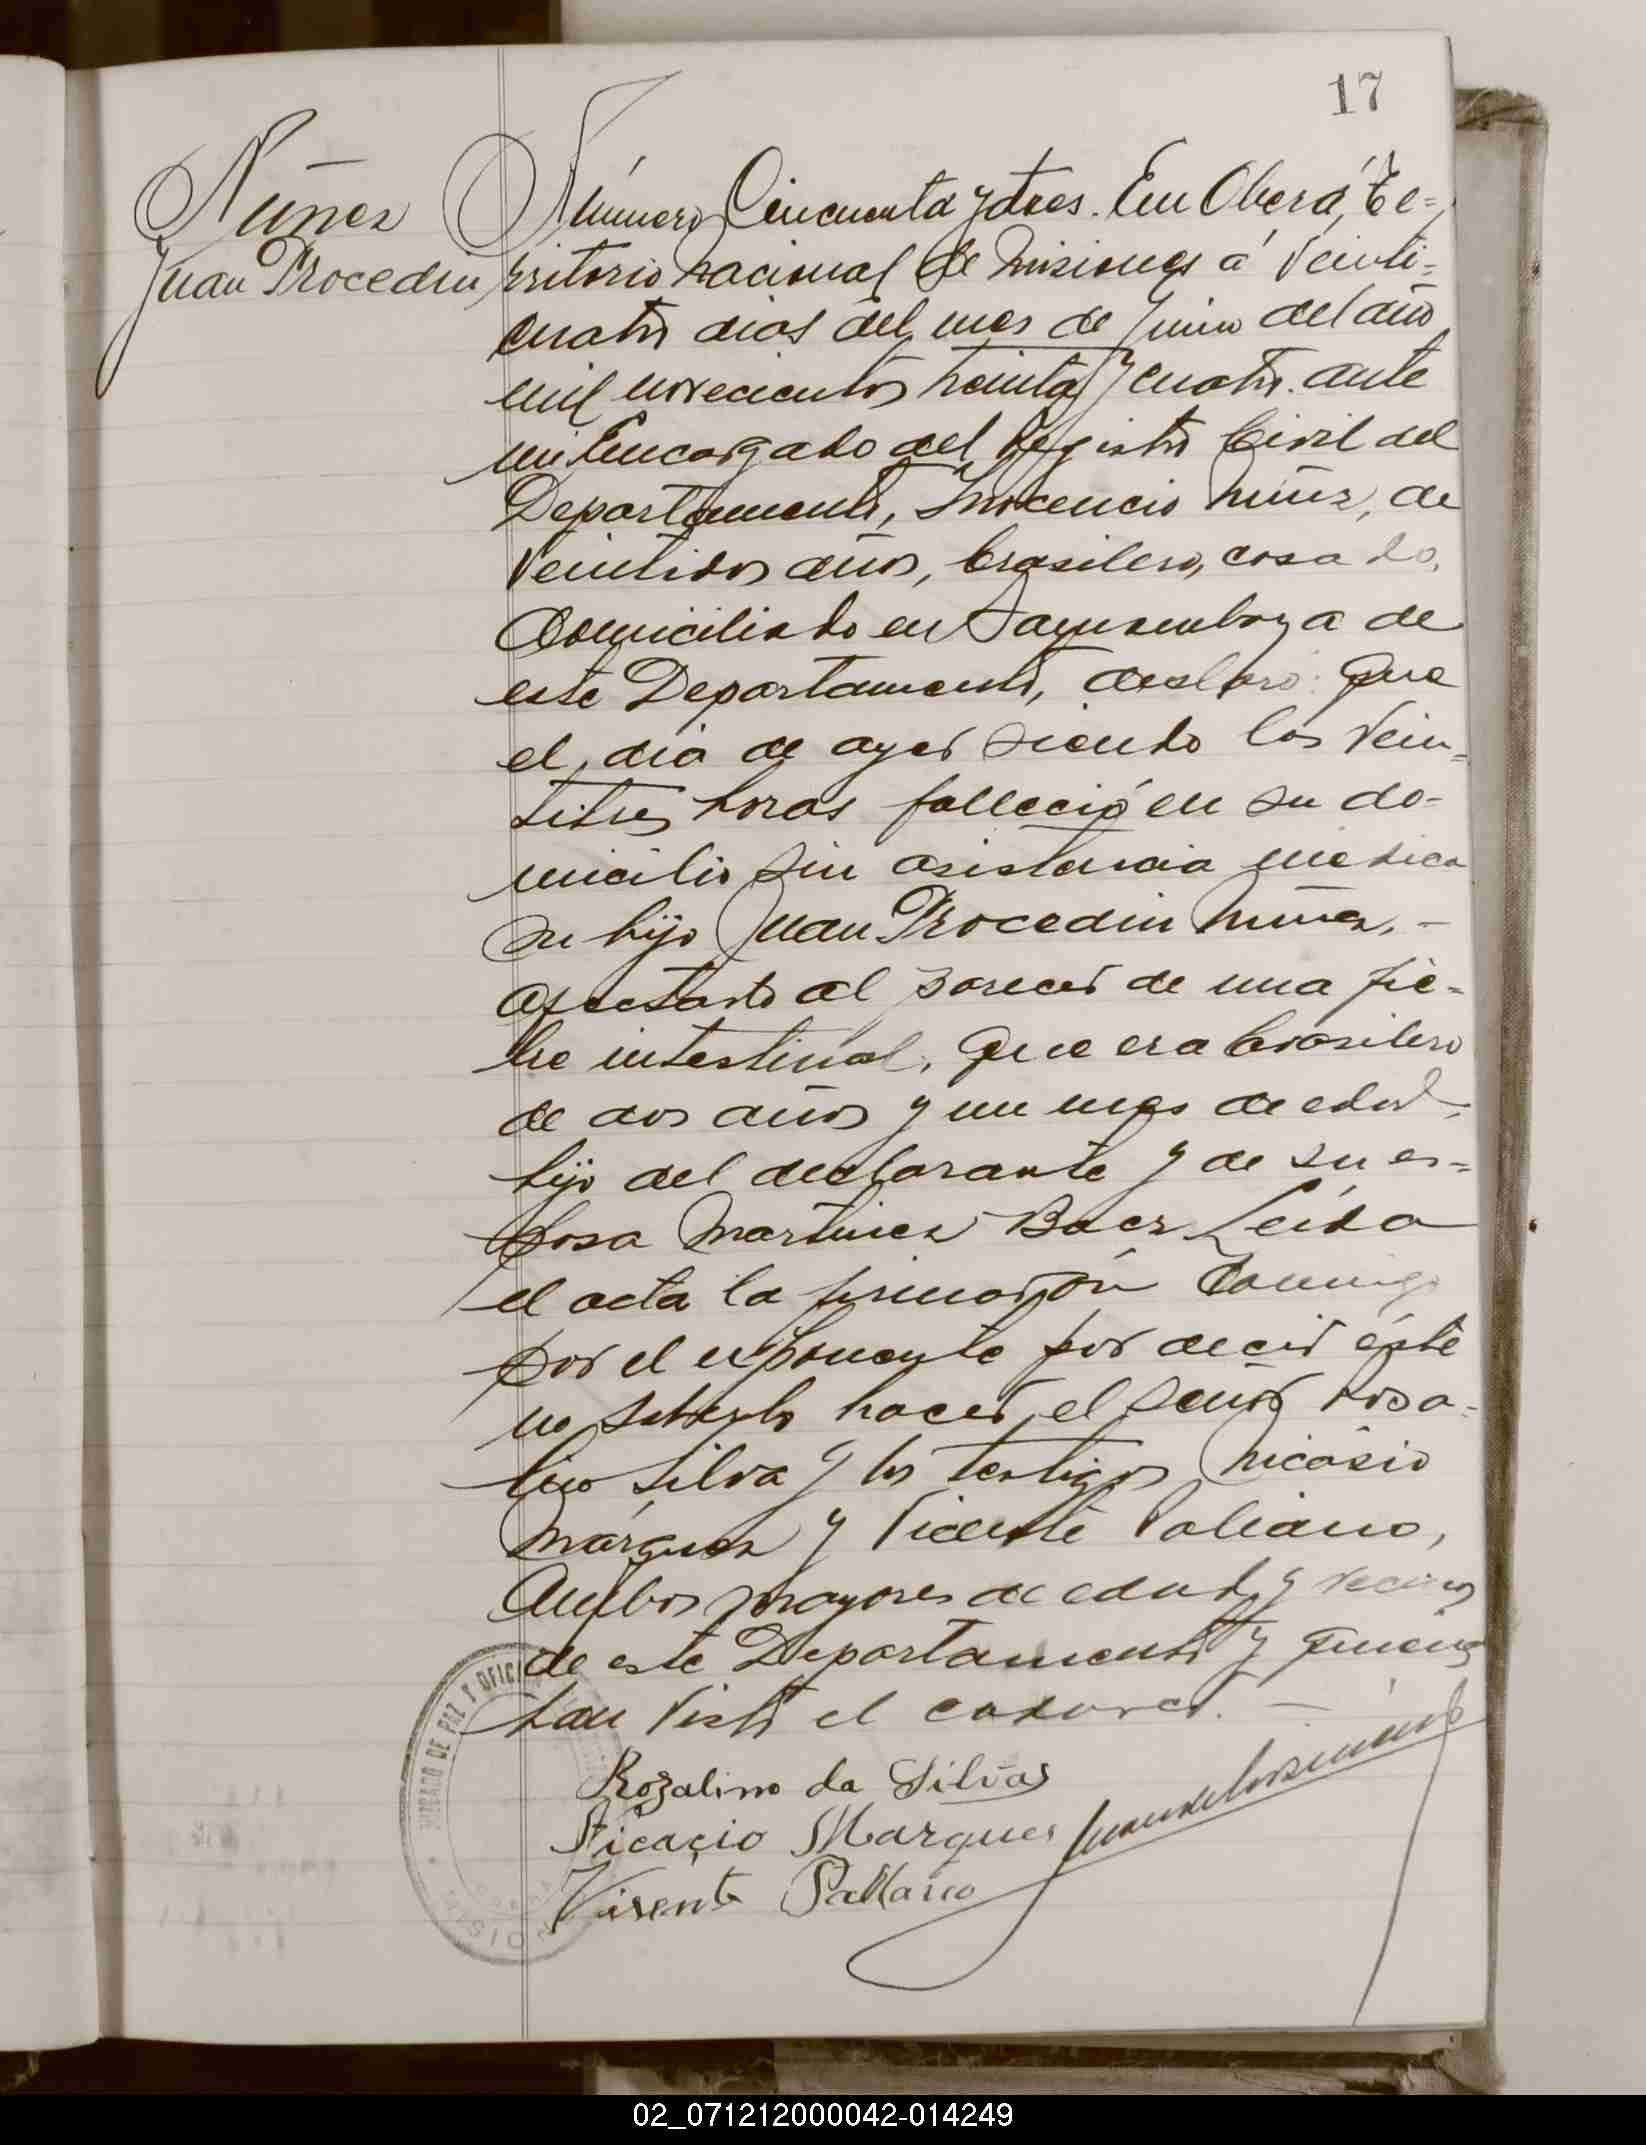 17
Núñez
Juan Procedin
Número Cincuenta y tres. En Oberá, Te=
rritorio Nacional de Misiones á veinti=
cuatro dias del mes de Junio del año
mil novecientos treinta y cuatro. ante
mi Encargado del Registro Civil del
Departamento, Inocencio Núñez, de
veintidos años, brasilero, casado,
domiciliado en de
este Departamento, declaró: Que
el dia de ayer siendo las vein=
titres horas falleció en su do-
micilio sin asistencia medica
su hijo Juan Procedin Núñez, -
afectado al parecer de una fie=
bre intestinal. Que era brasilero
de dos años y un mes de edad,
hijo del declarante y de su es=
posa Martinez Baez Leida
el acta la firmaron conmigo
por el exponente por decir éste
no saberlo hacer, el señor Rosa=
lino Silva y los testigos Nicásio
Márquez y Vicente Paliano,
Ambos mayores de edad y vecinos
de este Departamento y quienes
han visto el cadaver. -
Rozalino da Silvas
Nicacio Marques
Visente
JUZGADO DE PAZ Y OFICI
MISIONES
02_071212000042-014249